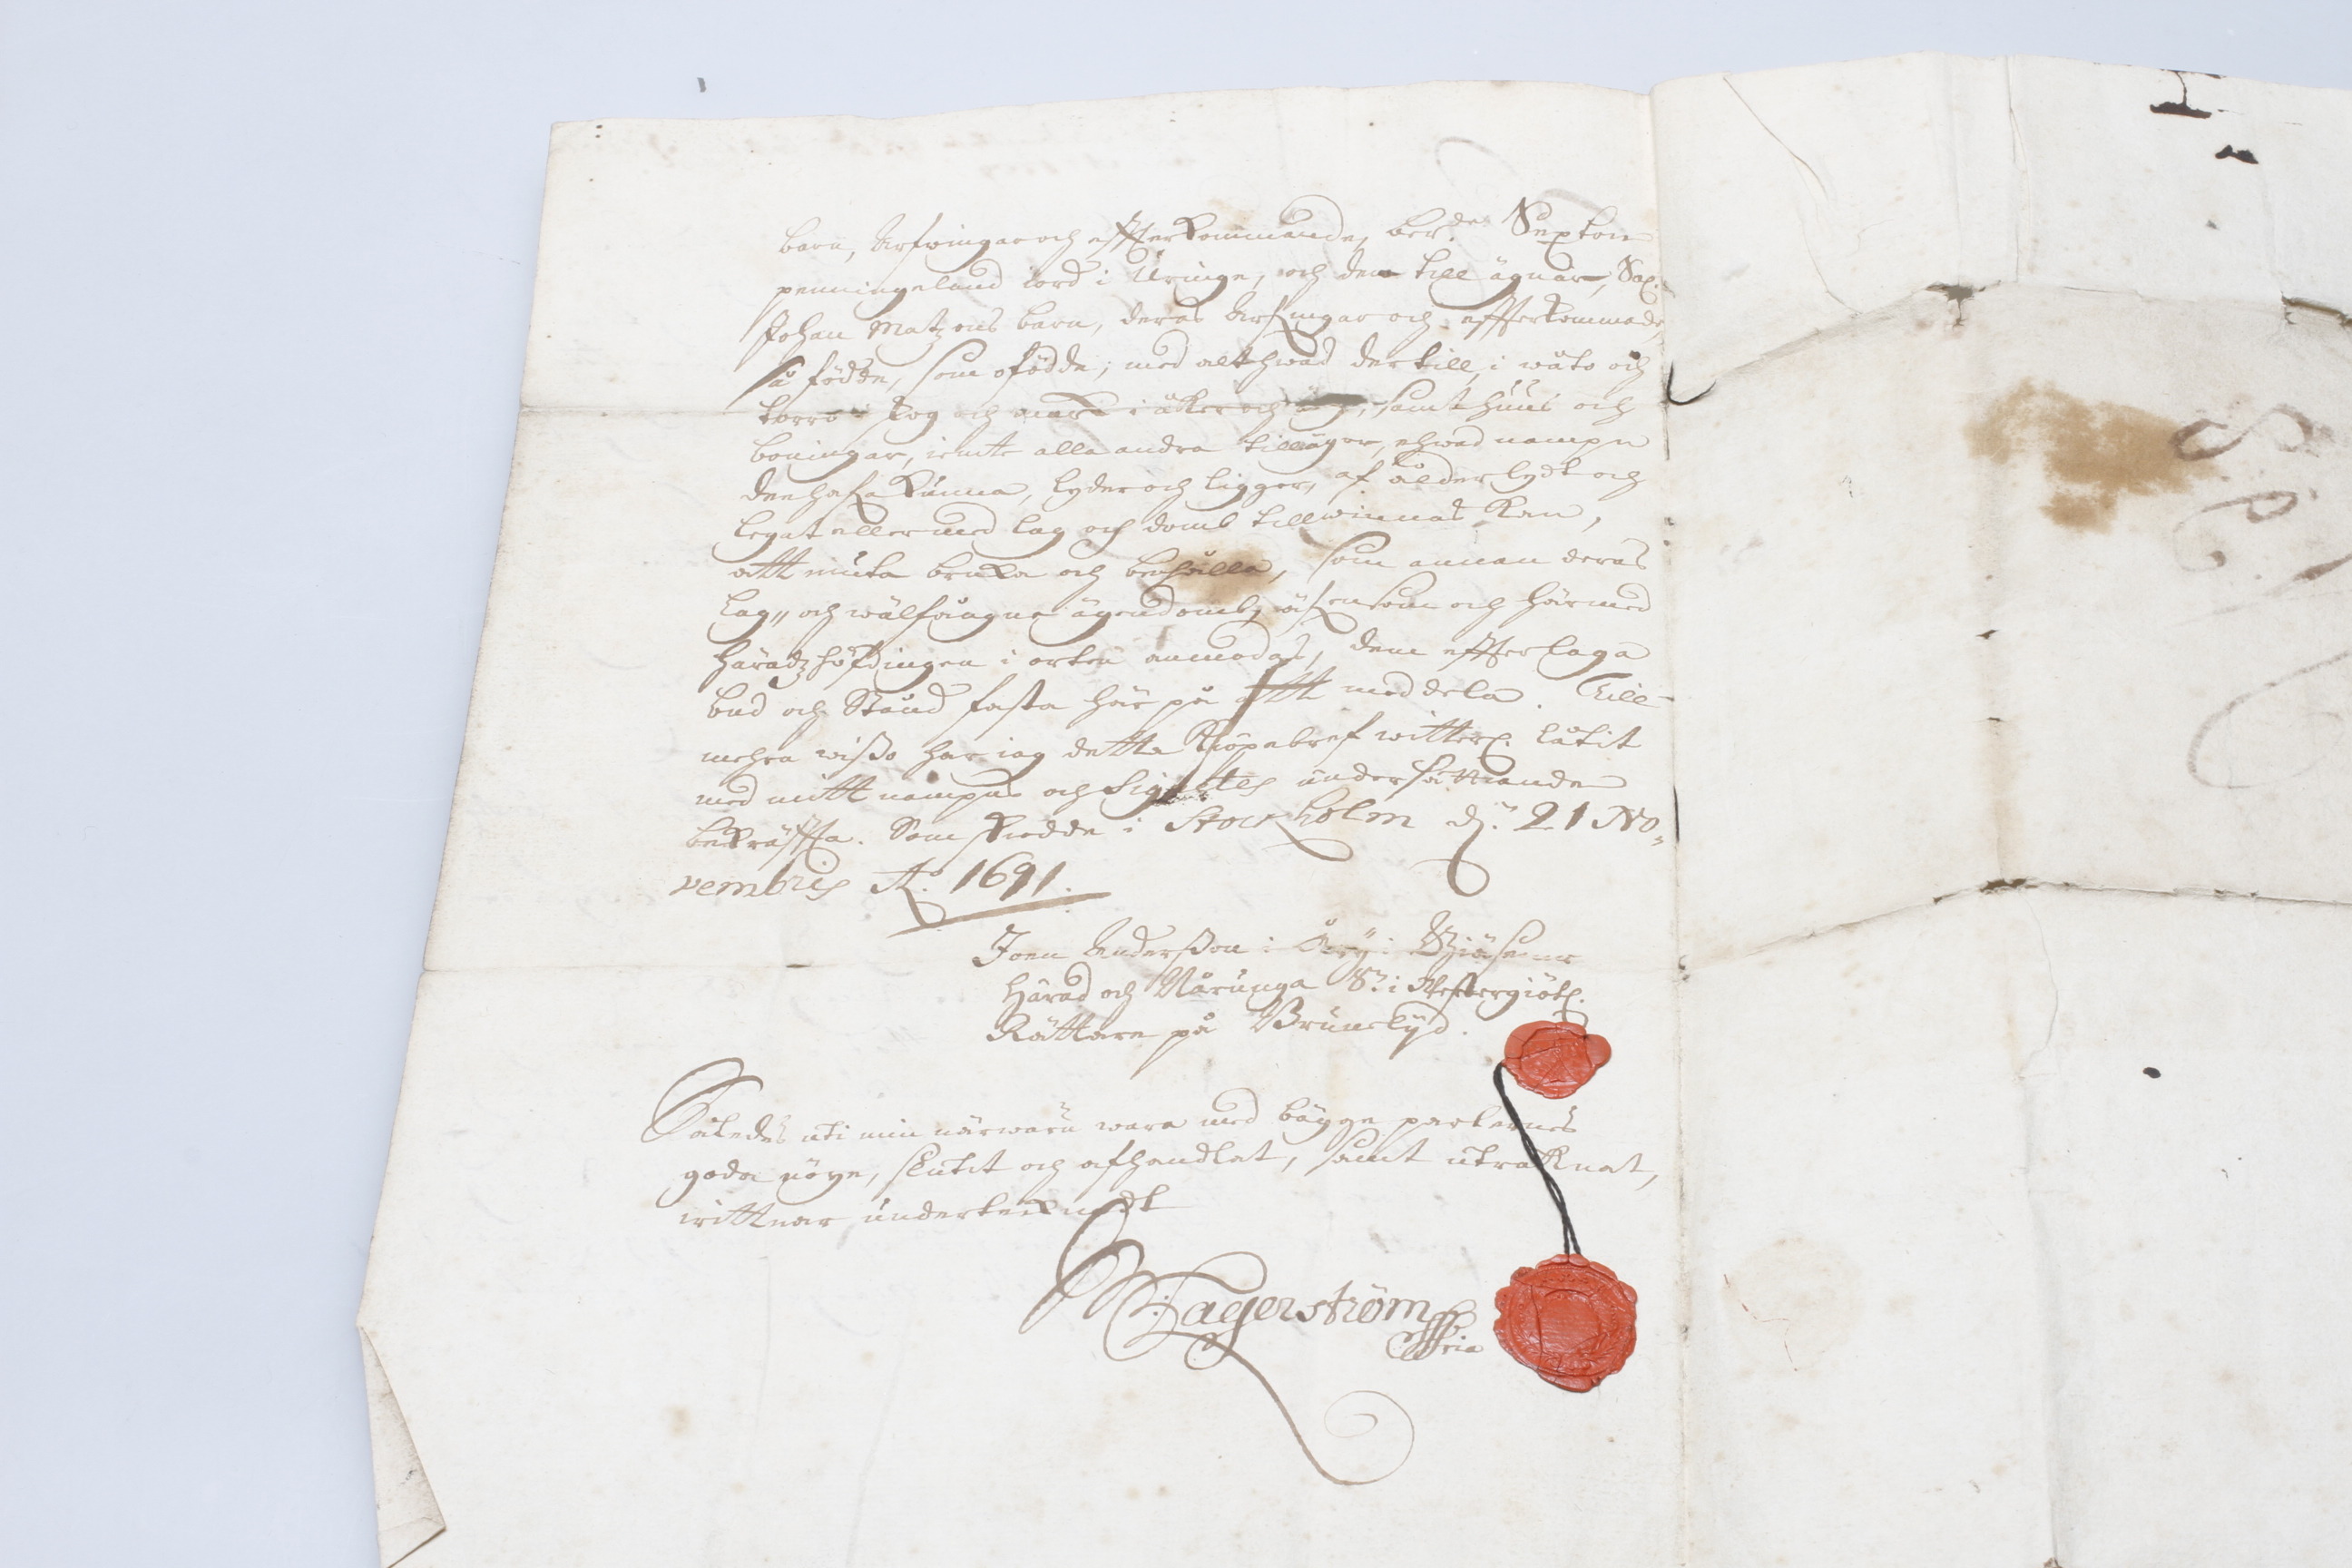 barn, Arfwingar och effterkommande, ber.de Sexton
penningeland iord i Uringe, och dem till ägnar, Sal.
Johan Matzons barn, deras Arfingar och effterkommade,
så födde, som ofödde; med alt hwad der till, i wåto och
torro skog och mark i åker och äng, samt huus och
boningar, iemte alla andra tillägor, ehwad nampn
den hafa kunna, lyder och ligger, af ålder lydt och
legat eller med lag och domb tillwinnas kan,
att niuta bruka och behålla, som annan deras
lag" och wälfångne ägendomb, äfensom och härmed
häradzhöfdingen i orten anmodas, dem effter laga
bud och Stånd fasta här på att meddela. Till
mehra wisso har iag detta Kiöpebref witterl. låtit
med mitt nampns och Signetes undersättiande
bekräffta. Som skedde i Stockholm d. 21 No-
vembris A:o 1691.
Joen Andersson i i
Härad och Nårunga S. i Westergiötl.
Rättare på
Således uti min närwaru wara med bägge parternes
goda nöye, slutit och afhandlat, samt uträknat,
wittnar underteknadt
Lagerström